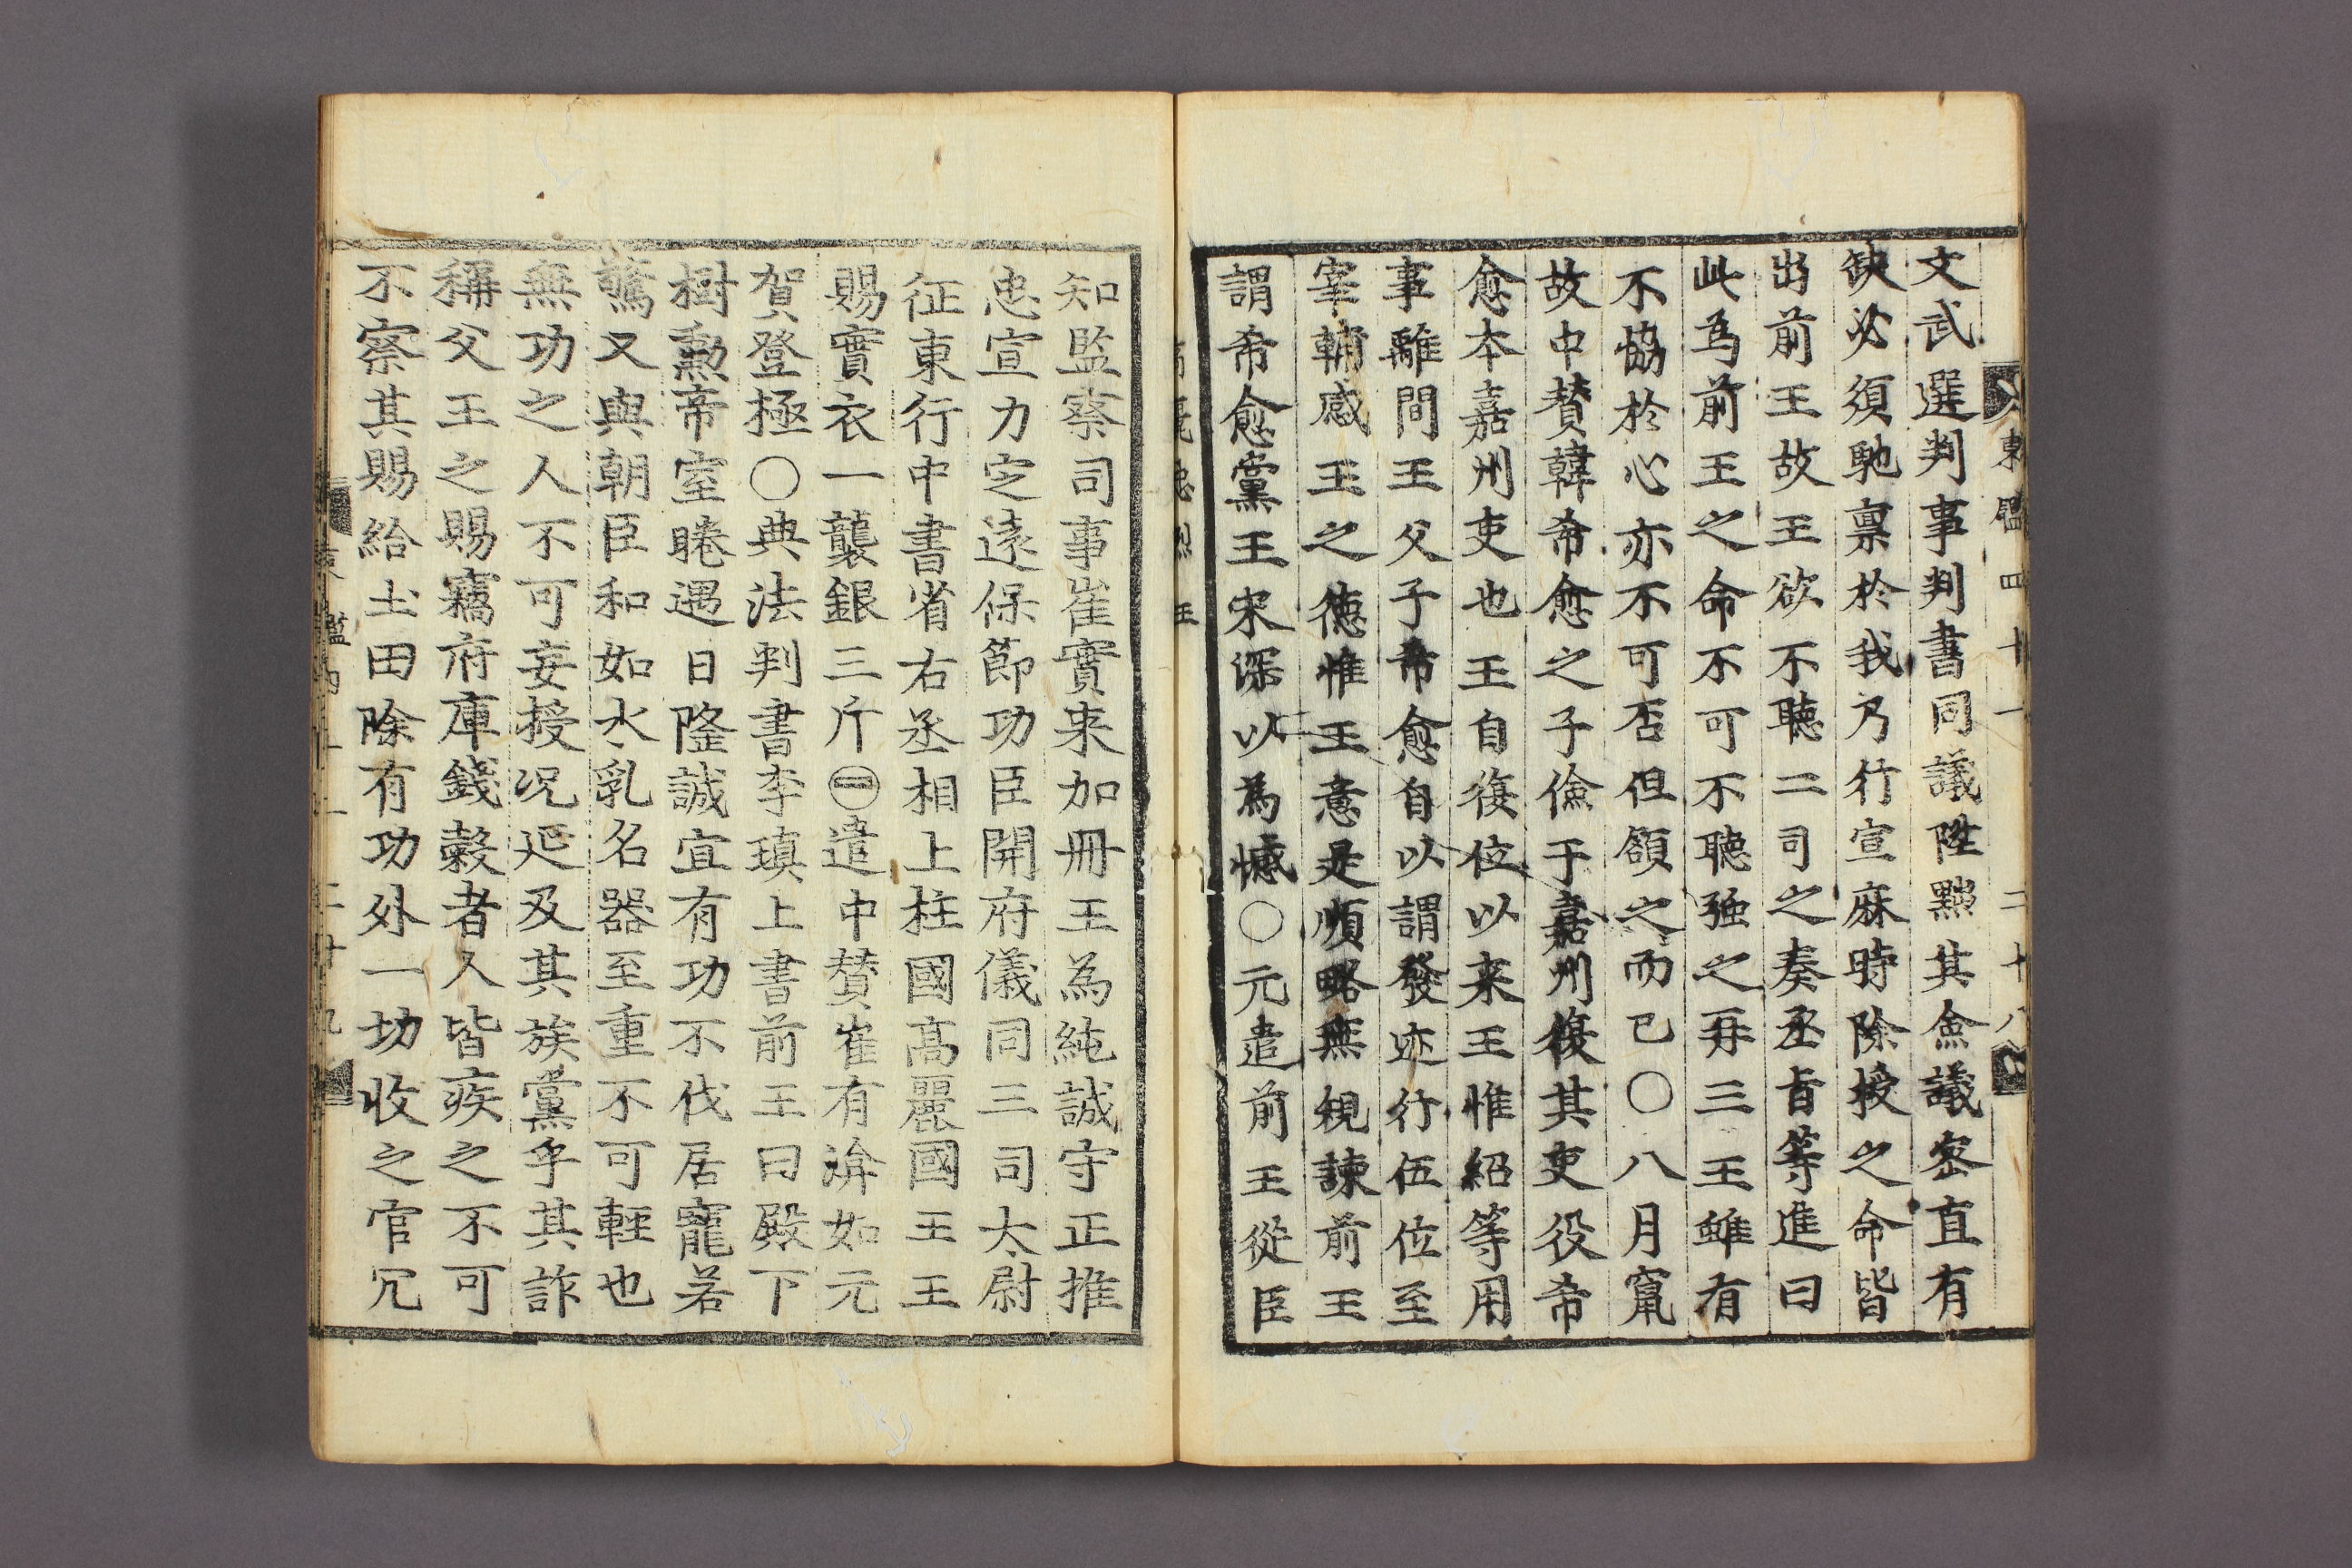 東鑑四十一 二十八
文武選判事判書同議陞黜其僉議密直有
缺必須馳稟於我乃行宣麻時除授之命皆
出前王故王欲不聽二司之奏丞旨等進曰
此為前王之命不可不聽强之再三王雖有
不恊於心亦不可否但頷之而已〇八月竄
故中賛韓希愈之子儉于嘉州復其吏役希
愈本嘉州吏也王自復位以来王惟紹等用
事離間王父子希愈自以謂發迹行伍位至
宰輔感王之德惟王意是順略無規諫前王
謂希愈黨王宋深以為憾〇元遣前王從臣
高麗忠烈王
知監察司事崔實来加冊王為純誠守正推
忠宣力定遠保節功臣開府儀同三司太尉
征東行中書省右丞相上柱國高麗國王王
賜實衣一襲銀三斤㊀遣中賛崔有渰如元
賀登極〇典法判書李瑱上書前王曰殿下
樹勳帝室睠遇日隆誠宜有功不伐居寵若
驚又與朝臣和如水乳名器至重不可輕也
無功之人不可妄授况延及其族黨乎其詐
稱父王之賜竊府庫錢穀者人皆疾之不可
不察其賜給土田除有功外一切收之官冗
東鑑四十一 二十九